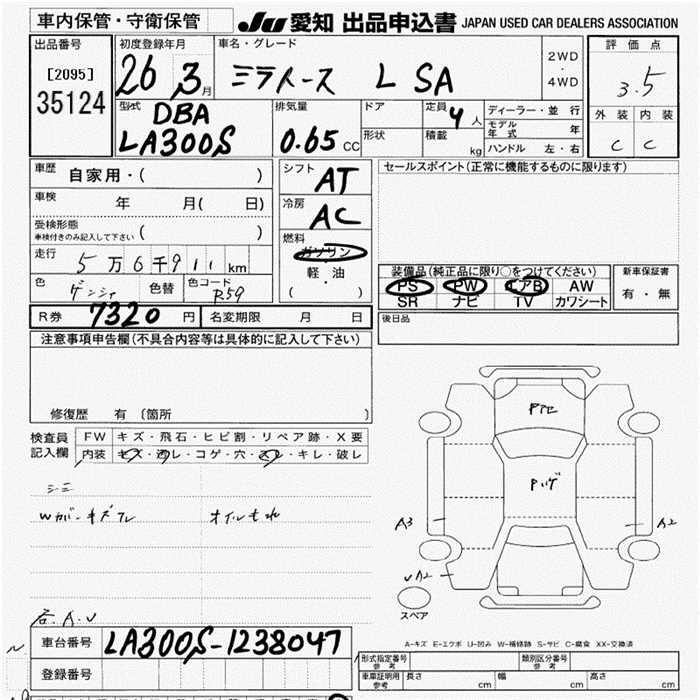 車内保管・守衛保管
JU 愛知 出品申込書 JAPAN USED CAR DEALERS ASSOCIATION
出品番号
[2095]
35124
初度登録年月
26 3月
車名・グレード
ミライース L SA
2WD
・
4WD
評価点
3.5
外装 内装
C C
型式
DBA
LA300S
排気量
0.65 CC
ドア
形状
定員 4 人
積載 kg
ディーラー・並行
モデル年式 年
ハンドル 左・右
車歴 自家用・( )
車検 年 月( 日)
受検形態
車検付きのみ記入して下さい ( )
走行 5万6千911km
色 色替 色コード R59
シフト AT
冷房 AC
燃料
ガソリン
軽・油
( )
セールスポイント(正常に機能するものに限ります)
装備品(純正品に限り○をつけてください)
PS PW エアB AW
SR ナビ TV カワシート
新車保証書
有・無
R券 7320 円 名変期限 月 日
後日品
注意事項申告欄(不具合内容等は具体的に記入して下さい)
修復歴 有 (箇所 )
検査員記入欄
FW キズ・飛石・ヒビ割・リペア跡・X要
内装 キズ・汚レ・コゲ・穴・スレ・キレ・破レ
オイルもれ
A3
A2
A2
スペア
A-キズ E-エクボ U-凹み W-補修跡 S-サビ C-腐食 XX-交換済
車台番号 LA300S-1238047
登録番号
形式指定番号 参考
類別区分番号 参考
車庫証明用 参考 長さ cm 幅 cm 高さ cm